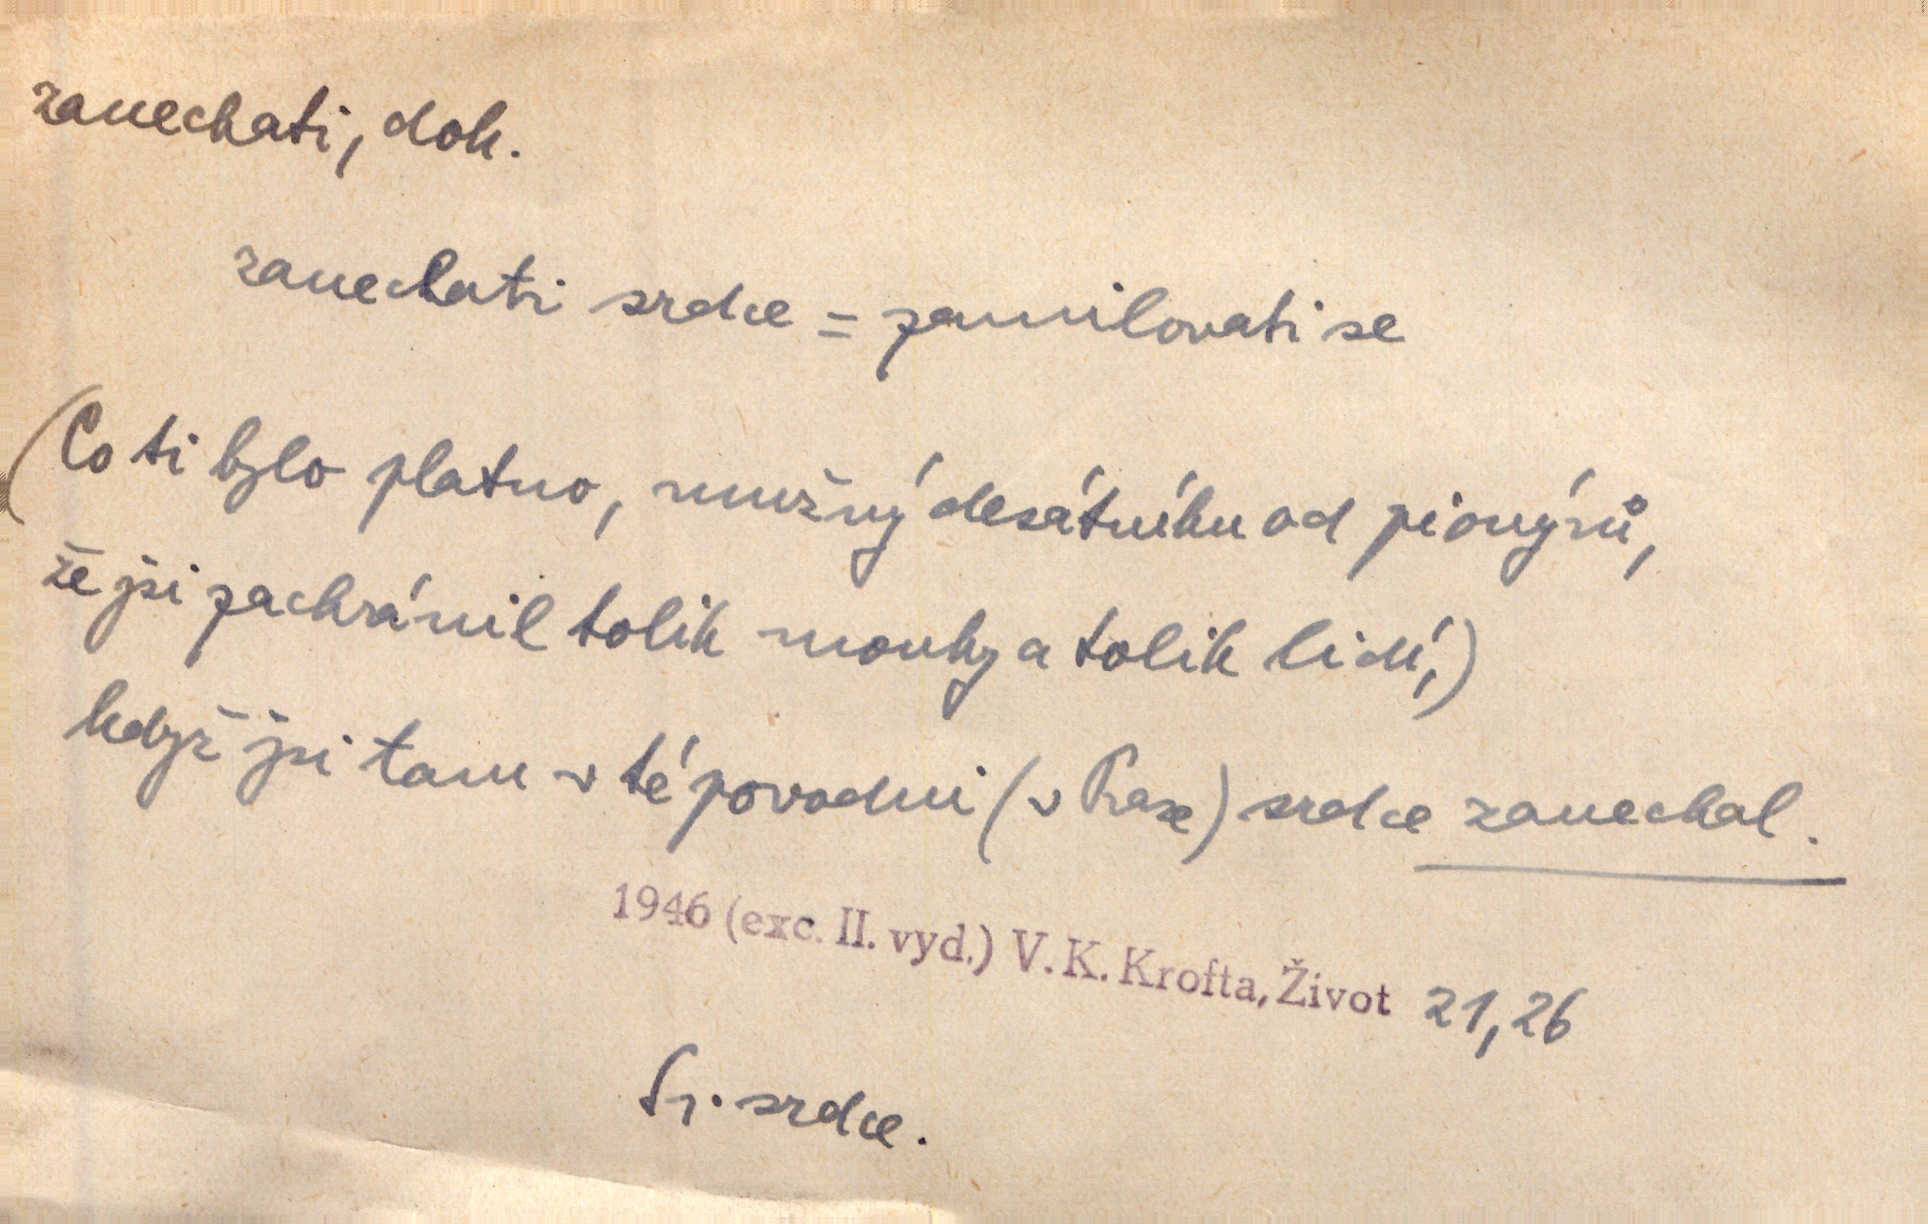 zanechati, dok.
zanechati srdce = zamilovati se
(Co ti bylo platno, mužný desátníku od pionýrů,
že jsi zachránil tolik mouky a tolik lidí,)
když jsi tam v té povodni (v Praze) srdce zanechal.
1946 (exc. II. vyd.) V. K. Krofta, Život 21,26
Sr. srdce.